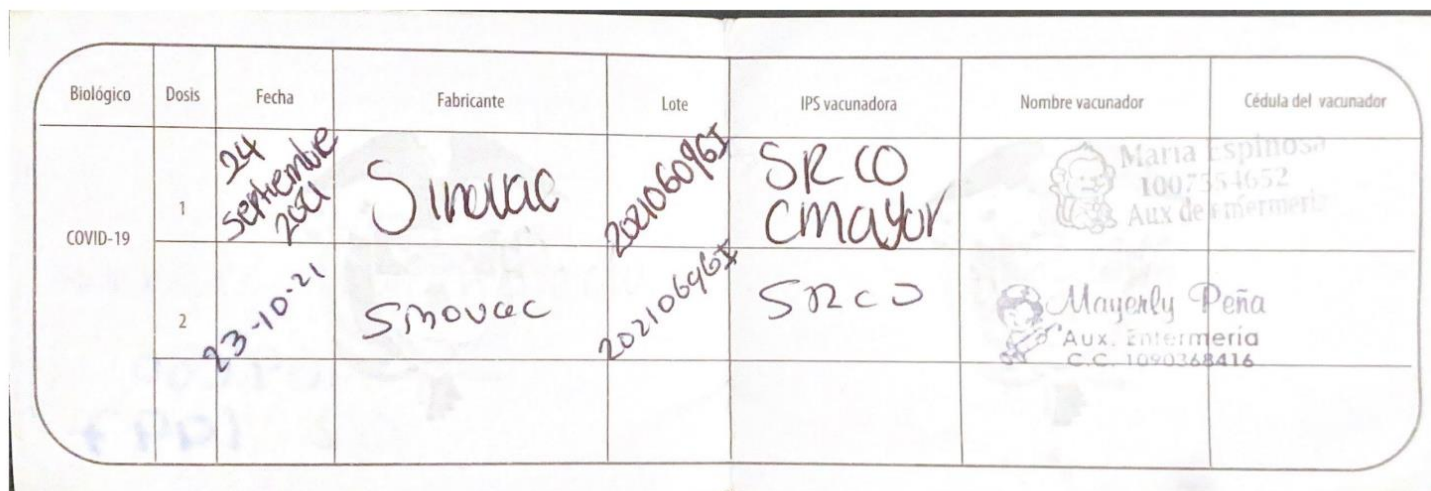 Biológico Dosis Fecha Fabricante Lote IPS vacunadora Nombre vacunador Cédula del vacunador
COVID-19
1
24
septiembre
2021
Sinovac
202106096I
SRCO
CMAYOR
Maria Espinosa
1007554652
Aux de enfermeria
2
23-10-21
Sinovac
SRCO
Mayerly Peña
Aux. Enfermeria
C.C. 1090368416